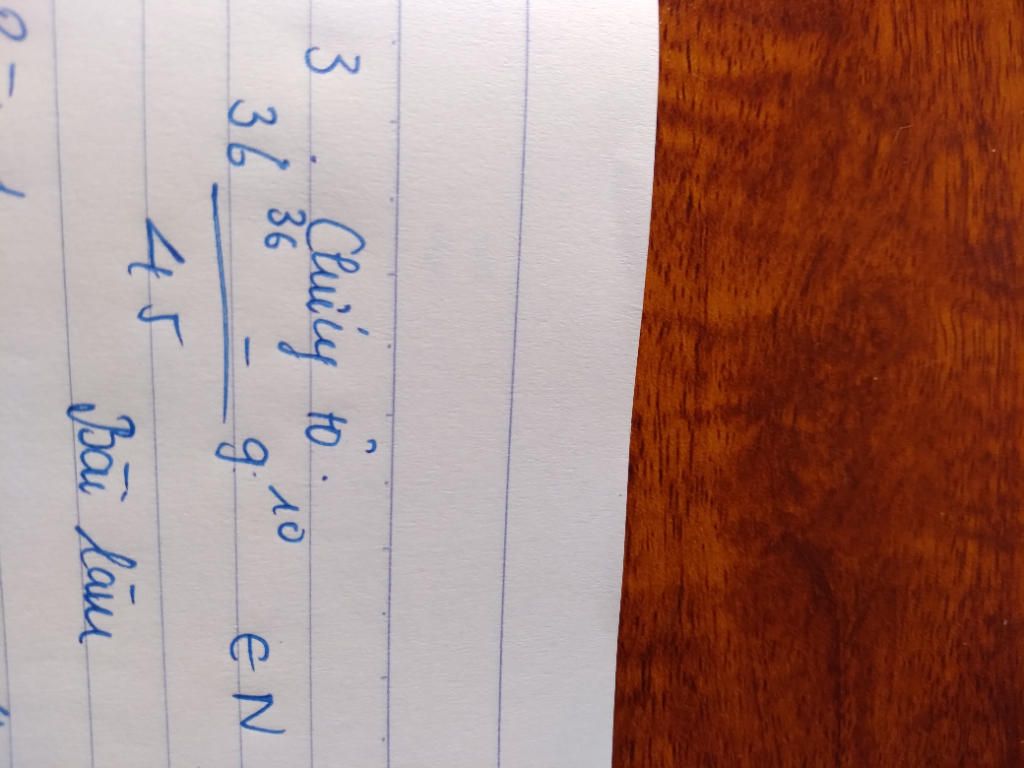 3. Chứng tỏ.
36³⁶ - 9¹⁰ ∈ N
45
Bài làm